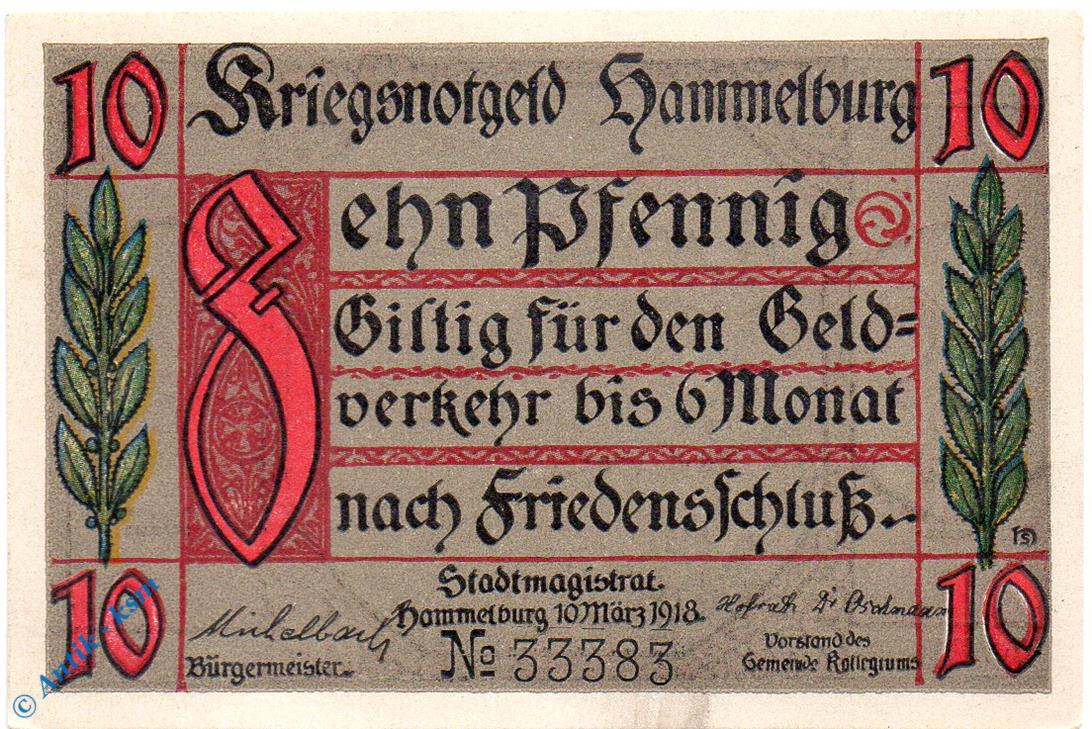 10 Kriegsnotgeld Hammelburg 10
Zehn Pfennig
Giltig für den Geld=
verkehr bis 6 Monat
nach Friedensschluß.
Stadtmagistrat.
Hammelburg 10 März 1918.
10 Michelbach Hofrath Dr 10
Bürgermeister.
№ 33383
Vorstand des
Gemeinde Kollegiums
© Antik - ksm